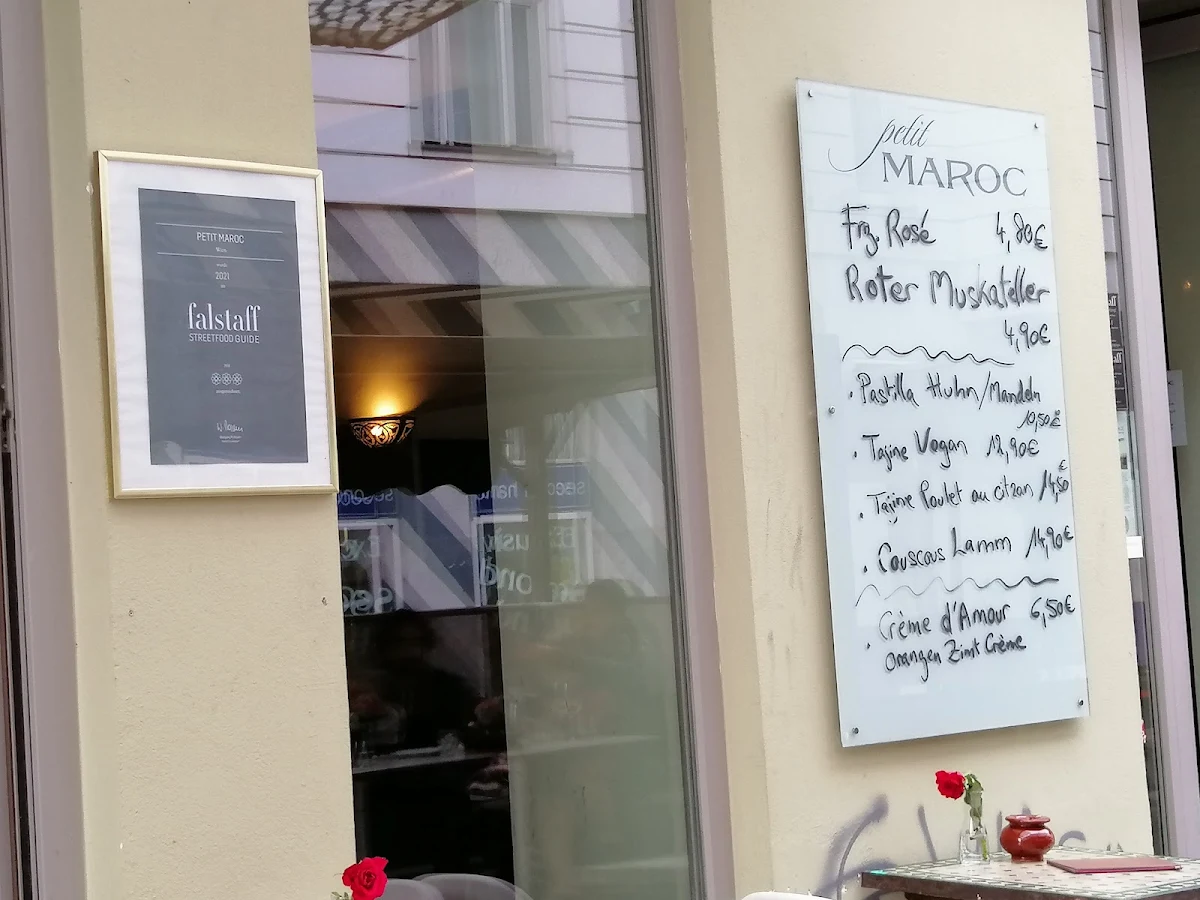 PETIT MAROC
Wien
2021
falstaff
STREETFOOD GUIDE
petit
MAROC
Frz. Rosé 4,80€
Roter Muskateller
4,90€
· Pastilla Huhn/Mandeln
10,50€
· Tajine Vegan 12,90€
· Tajine Poulet au citron 14,50€
· Couscous Lamm 14,90€
· Crème d'Amour 6,50€
Orangen Zimt Crème